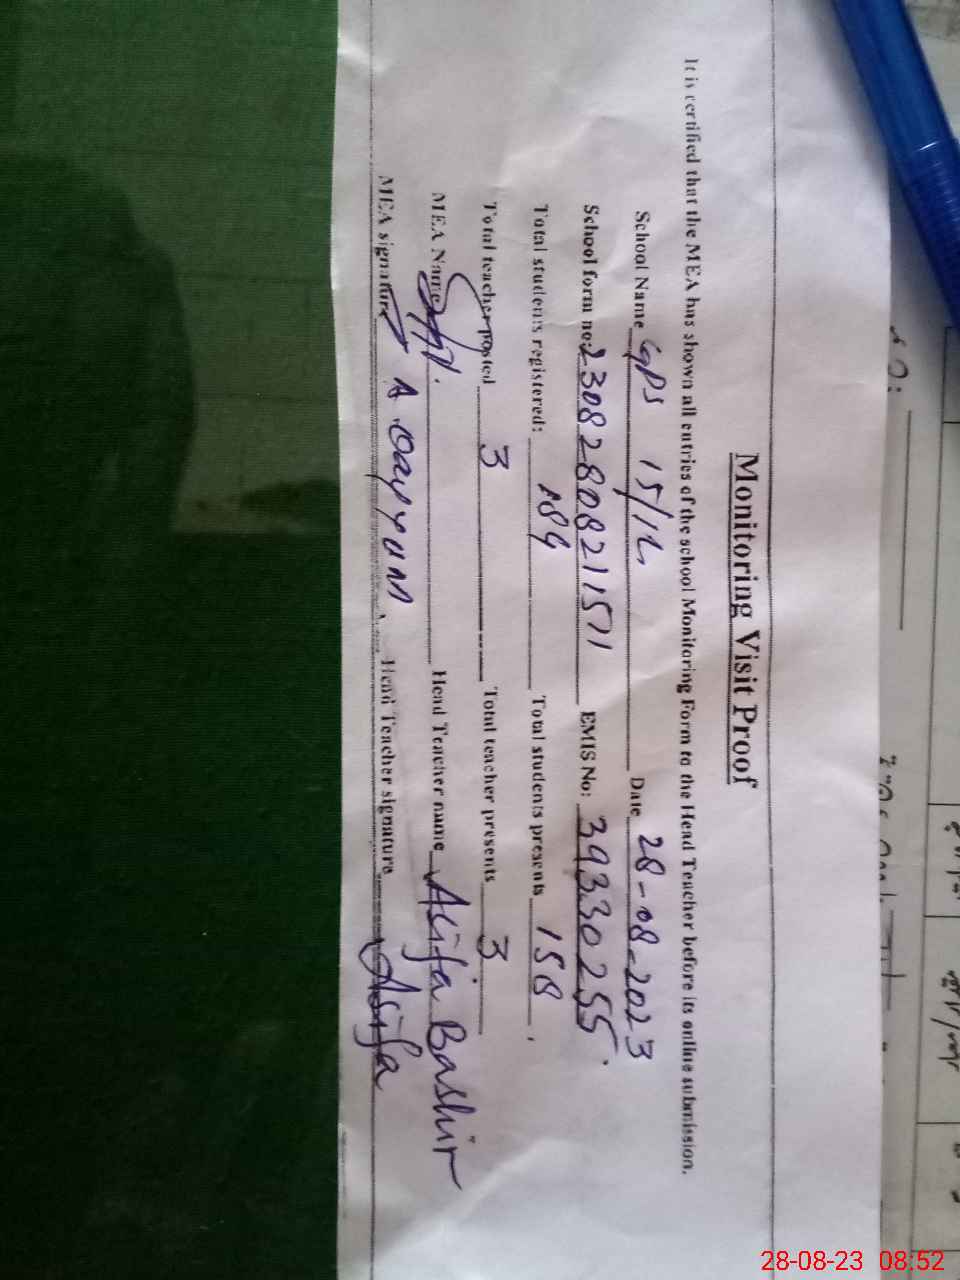 Monitoring Visit Proof
It is certified that the MEA has shown all entries of the school Monitoring Form to the Head Teacher before its online submission.
School Name GPS 15/1L Date 28-08-2023
School form no: 23082808211511 EMIS No: 39330255
Total students registered: 189 Total students presents 158
Total teacher posted 3 Total teacher presents 3
MEA Name Head Teacher name Asifa Bashir
MEA signature A. Qayyum Head Teacher signature Asifa
28-08-23 08:52